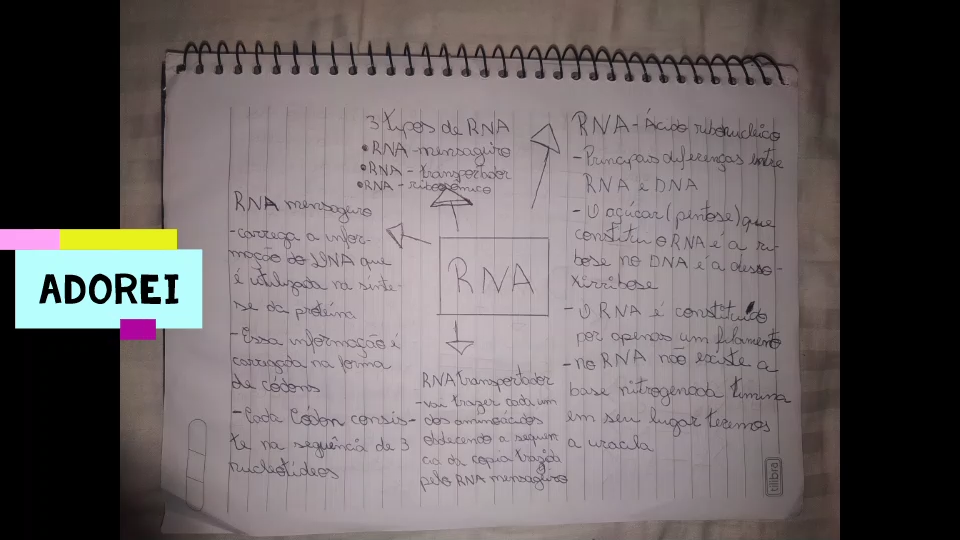 ADOREI
3 tipos de RNA
•RNA-mensageiro
•RNA-transportador
•RNA-ribossômico
RNA mensageiro
-carrega a infor-
mação do DNA que
é utilizada na sinte-
se da proteína
-Essa informação é
carregada na forma
de códons
-Cada Códon consis-
te na sequência de 3
nucleotideos
RNA
RNA transportador
-vai trazer cada um
dos aminoácidos
obdecendo a sequen
cia da copia trazida
pelo RNA mensageiro
RNA-Ácido ribonucleico
-Principais diferenças entre
RNA e DNA
-O açúcar (pentose) que
constitui o RNA é a ri-
bose no DNA é a desso-
xirribose
-O RNA é constituido
por apenas um filamento
-no RNA não existe a
base nitrogenada timina
em seu lugar teremos
a uracula
tilibra